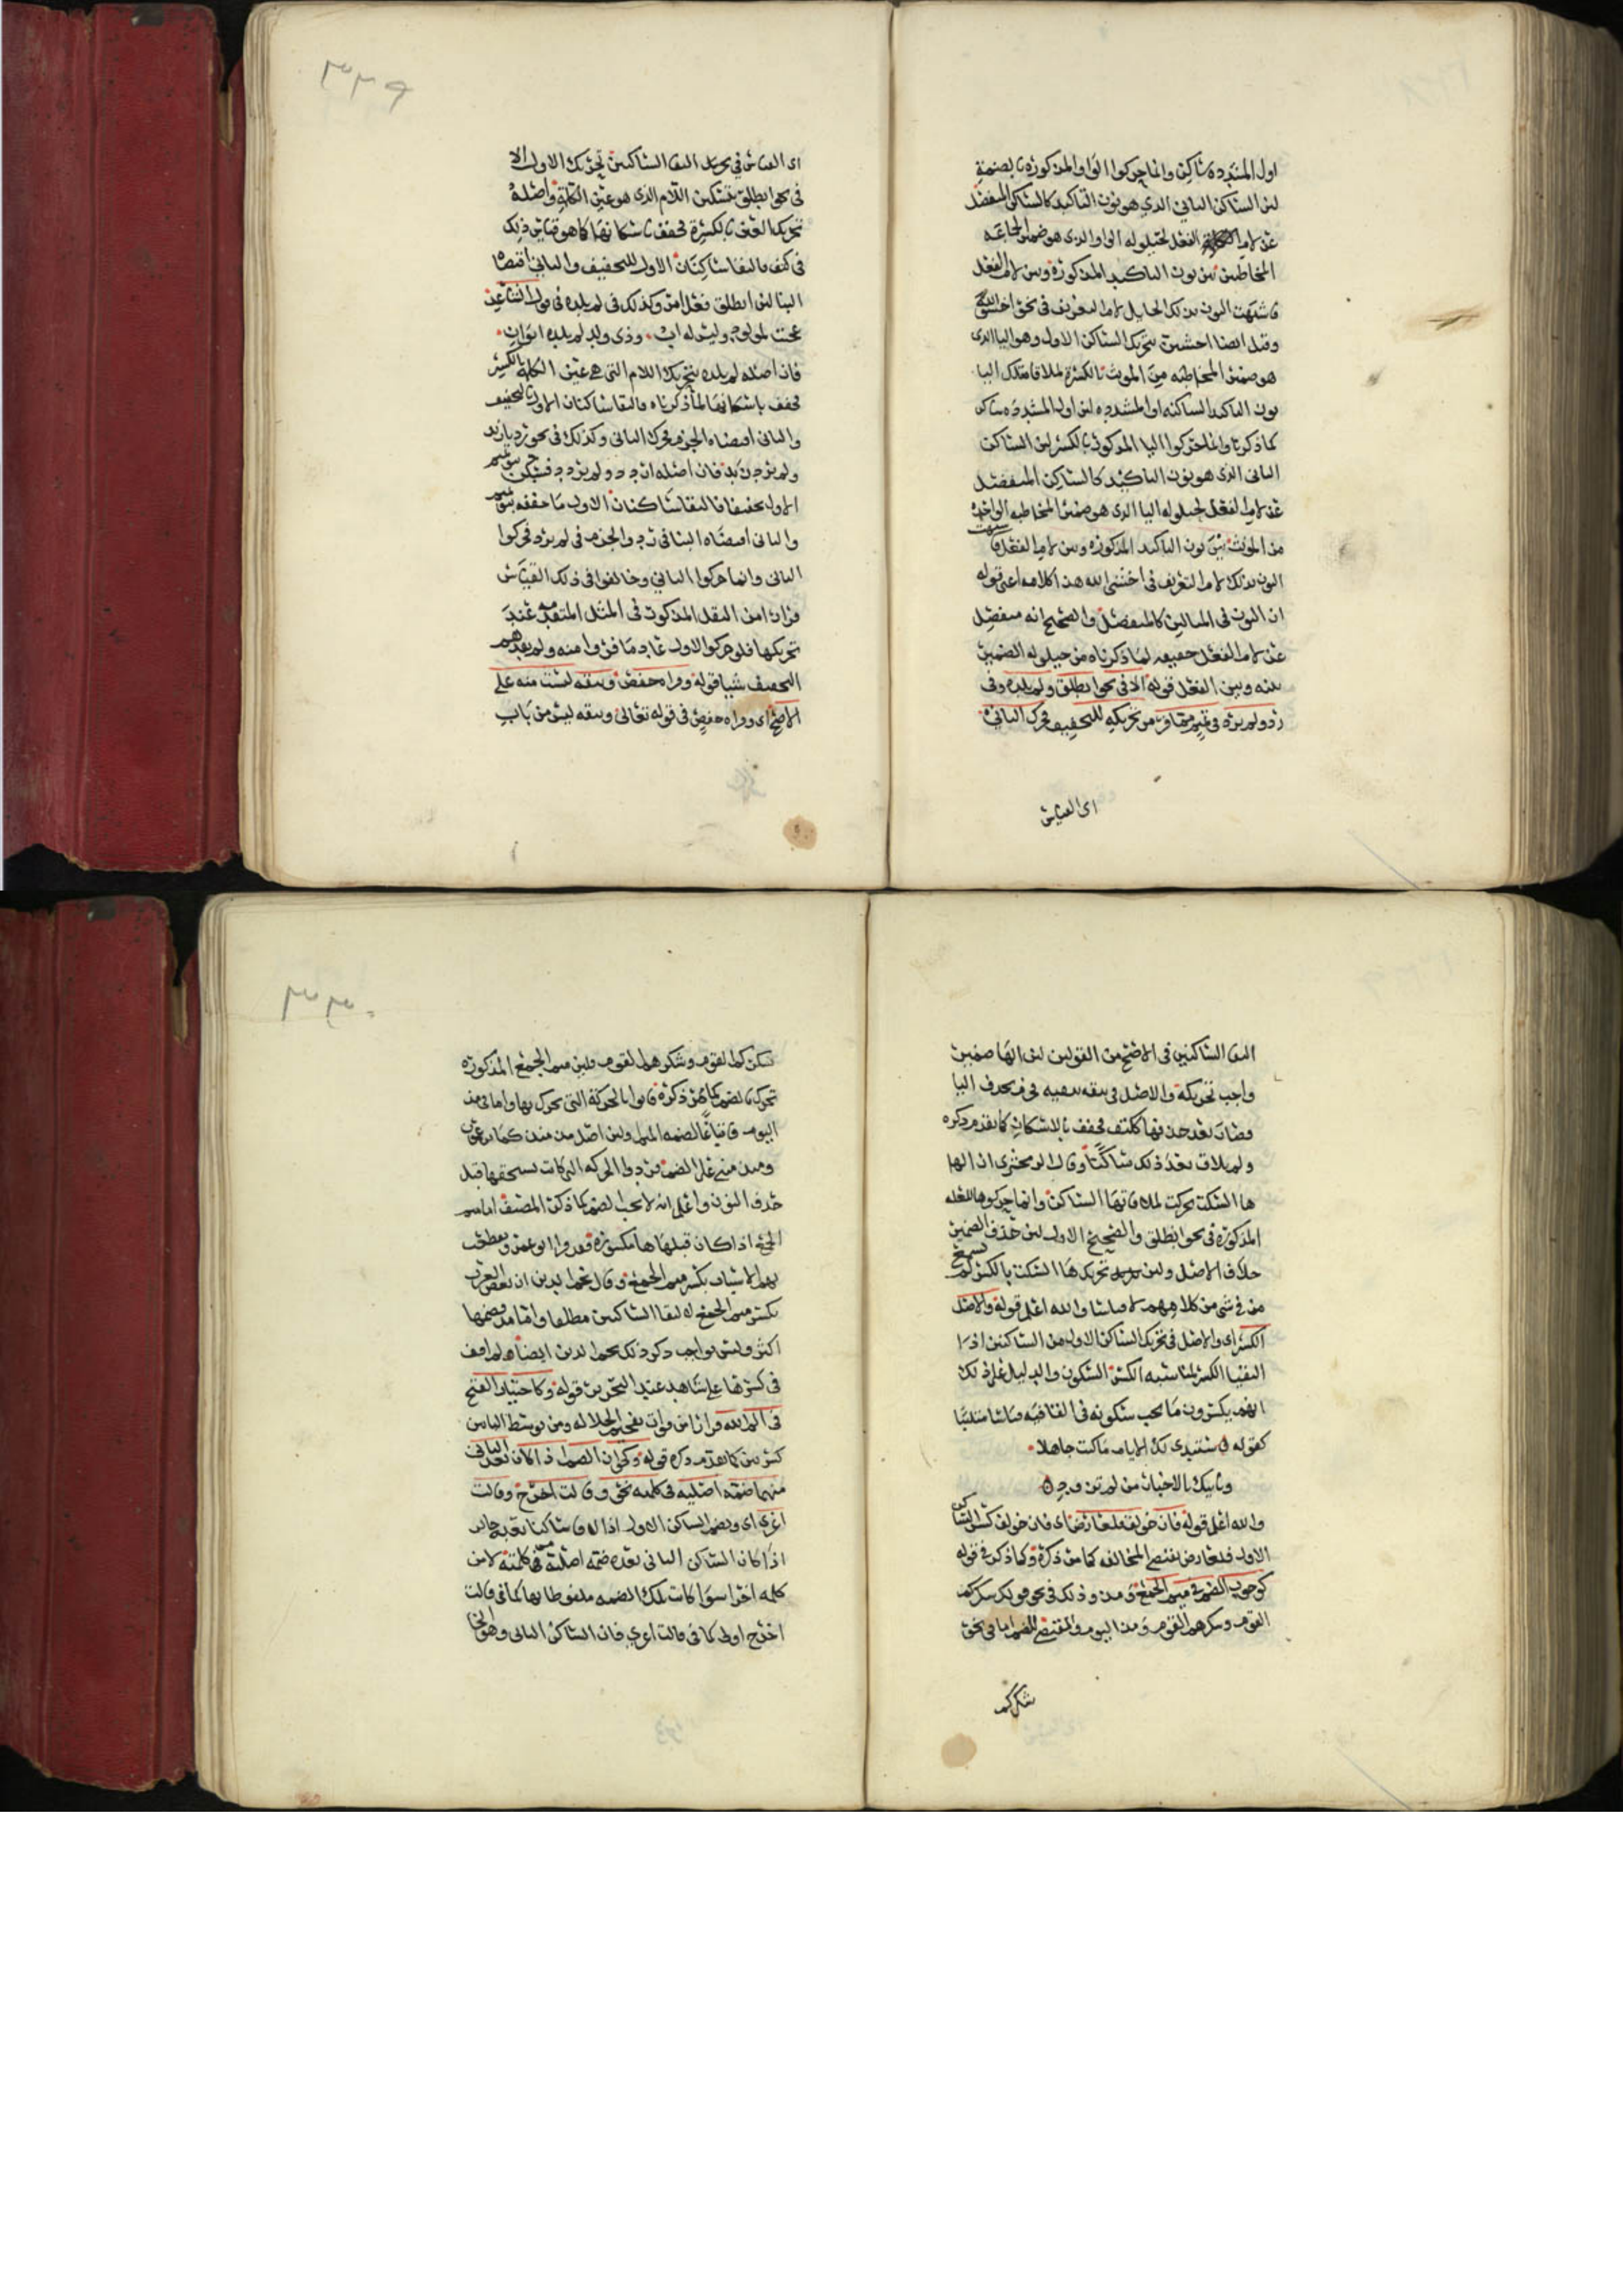 اول المشددة ساكن وانما حركوا الواو المذكورة بالضمة
لان الساكن الثاني الذي هو نون التاكيد كالساكن المنفصل
عن لام الفعل لحيلولة الواو الذي هو ضمير الجماعة
المخاطبين بين نون التاكيد المذكورة وبين لام الفعل
فاشبهت النون بذلك الحايل لام التعريف في نحو اخشوا الله
وقيل ايضا اخشين بتحريك الساكن الاول وهو اليا الذي
هو ضمير المخاطبة من المونث بالكسرة لملاقاة تلك اليا
نون التاكيد الساكنة او المشددة لان اول المشددة ساكن
كما ذكرنا وانما حركوا اليا المذكورة بالكسر لان الساكن
الثاني الذي هو نون التاكيد كالساكن المنفصل
عن لام الفعل لحيلولة اليا الذي هو ضمير المخاطبة الواحدة
من المونث بين نون التاكيد المذكورة وبين لام الفعل فاشبهت
النون بذلك لام التعريف في اخشي الله هذا كلامه اعني قوله
ان النون في المثالين كالمنفصل والصحيح انه منفصل
عن لام الفعل حقيقة لما ذكرناه من حيلولة الضمير
بينه وبين الفعل قوله الا في نحو انطلق ولم يلده وفي
رد ولم يرد في تميم مما فر من تحريكه للتخفيف فحرك الثاني
اي القياس
٣٣٩
اي القياس في التقا الساكنين تحريك الاول الا
في نحو انطلق بتسكين اللام الذي هو عين الكلمة واصله
تحريك العين بالكسرة فخفف باسكانها كما هو قياس ذلك
في كتف فالتقا ساكنان الاول للتخفيف والثاني اقتضاه
البنا لان انطلق فعل امر وكذلك في لم يلده في قول الشاعر
عجبت لمولود وليس له اب وذي ولد لم يلده ابوان
فان اصله لم يلده بتحريك اللام التي هي عين الكلمة بالكسر
فخفف باسكانها لما ذكرناه فالتقا ساكنان الاول للتخفيف
والثاني اقتضاه الجزم فحرك الثاني وكذلك في نحو رد يا زيد
ولم يرد زيد فان اصله اردد ولم يردد فسكن بنو تميم
الاول تخفيفا فالتقا ساكنان الاول ما خففه بنو تميم
والثاني اقتضاه البنا في رد والجزم في لم يرد فحركوا
الثاني وانما حركوا الثاني وخالفوا في ذلك القياس
فرارا من الثقل المذكور في المثل المتقدمة عند
تحريكها فلو حركوا الاول عاد ما فروا منه ولم يفدهم
التخفيف شيا قوله وقراة حفص ويتقه ليست منه على
الاصح اي وقراة حفص في قوله تعالى ويتقه ليس من باب
التقا الساكنين في الاصح من القولين لان الها ضمير
واجب تحريكه والاصل في يتقه يتقيه فحذف اليا
فصار بعد حذفها ككتف فخفف بالاسكان كما تقدم ذكره
ولم يلاق بعد ذلك ساكنا وقال الزمخشري ان الها
ها السكت حركت لملاقاتها الساكن وانما حركوها للعلة
المذكورة في نحو انطلق والصحيح الاول لان حذف الضمير
خلاف الاصل ولان تحريك ها السكت بالكسر لم يسمع
في شي من كلامهم لا قياسا والله اعلم قوله والاصل
الكسر اي والاصل في تحريك الساكن الاول من الساكنين اذا
التقيا الكسر لمناسبة الكسر السكون والدليل على ذلك
انهم يكسرون ما يجب سكونه في القافية
كقوله ستبدي لك الايام ما كنت جاهلا
وياتيك بالاخبار من لم تزود
والله اعلم قوله فان خولف فلعارض اي فان خولف كسر الساكن
الاول فلعارض يقتضي المخالفة كما مر ذكره وكما ذكر في قوله
كوجوب الضم في ميم الجمع ومذ وذلك في نحو قولك شكركم
القوم وشكرهم القوم ومذ اليوم والمقتضي للضم اما في نحو
شكركم
٣٣٠
شكركم القوم وشكرهم القوم فلان ميم الجمع المذكورة
تحرك بالضم كما مر ذكره فاتوا بالحركة التي تحرك بها واما في مذ
اليوم فاتباعا لضمة الميم ولان اصل مذ منذ كما تعرفون
ومنذ مبني على الضم فردوا الحركة التي كانت تستحقها قبل
حذف النون واعلم انه لا يجب الضم كما ذكر المصنف اما ميم
الجمع اذا كان قبلها ها مكسورة فقد قرا ابو عمرو وتقطعت
بهم الاسباب بكسر ميم الجمع وقال نجم الدين ان بعض العرب
يكسر ميم الجمع لالتقا الساكنين مطلقا واما مذ فضمها
اكثر وليس بواجب ذكر ذلك نجم الدين ايضا ولم اقف
في كسرها على شاهد عند النحويين قوله وكاختيار الفتح
في الم الله فرارا من فوات تفخيم الجلالة ومن توسط الياء بين
كسرتين كما تقدم ذكره قوله وكجواز الضم اذا كان بعد الثاني
منهما ضمة اصلية في كلمته نحو وقالت اخرج وقالت
اغزي اي ويضم الساكن الاول اذا لاقا ساكنا بعده جايز
اذا كان الساكن الثاني بعده ضمة اصلية في كلمته لا من
كلمة اخرا سوا كانت تلك الضمة ملفوظا بها كما في قالت
اخرج اولى كما في قالت اغزي فان الساكن الثاني وهو الخا